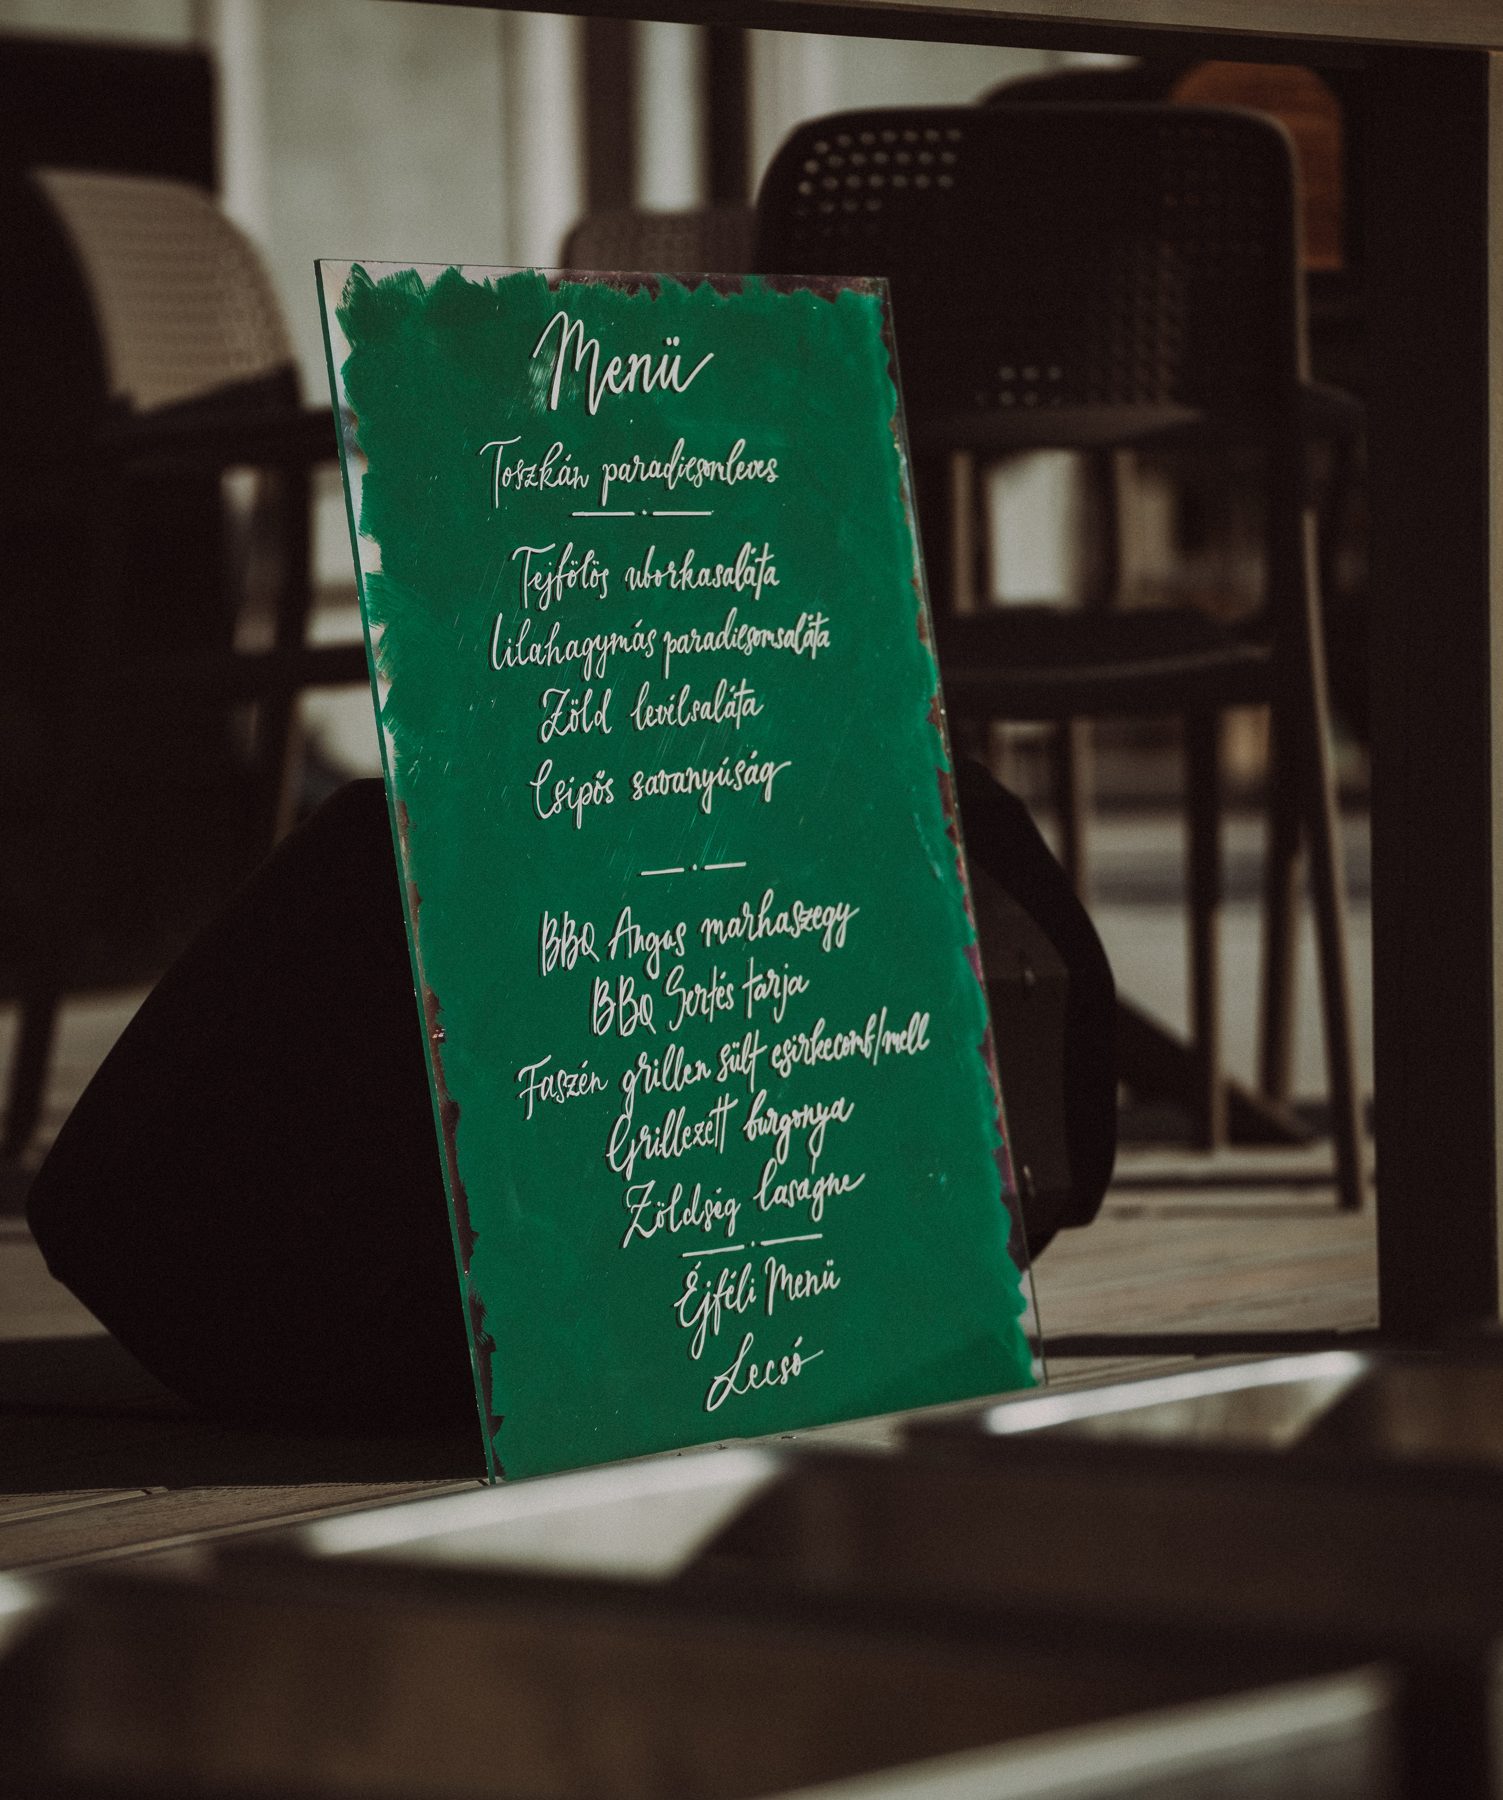 Menü
Toszkán paradicsomleves
Tejfölös uborkasaláta
Lilahagymás paradicsomsaláta
Zöld levélsaláta
Csípős savanyúság
BBQ Angus marhaszegy
BBQ Sertés tarja
Faszén grillen sült csirkecomb/mell
Grillezett burgonya
Zöldség lasagne
Éjféli Menü
Lecsó